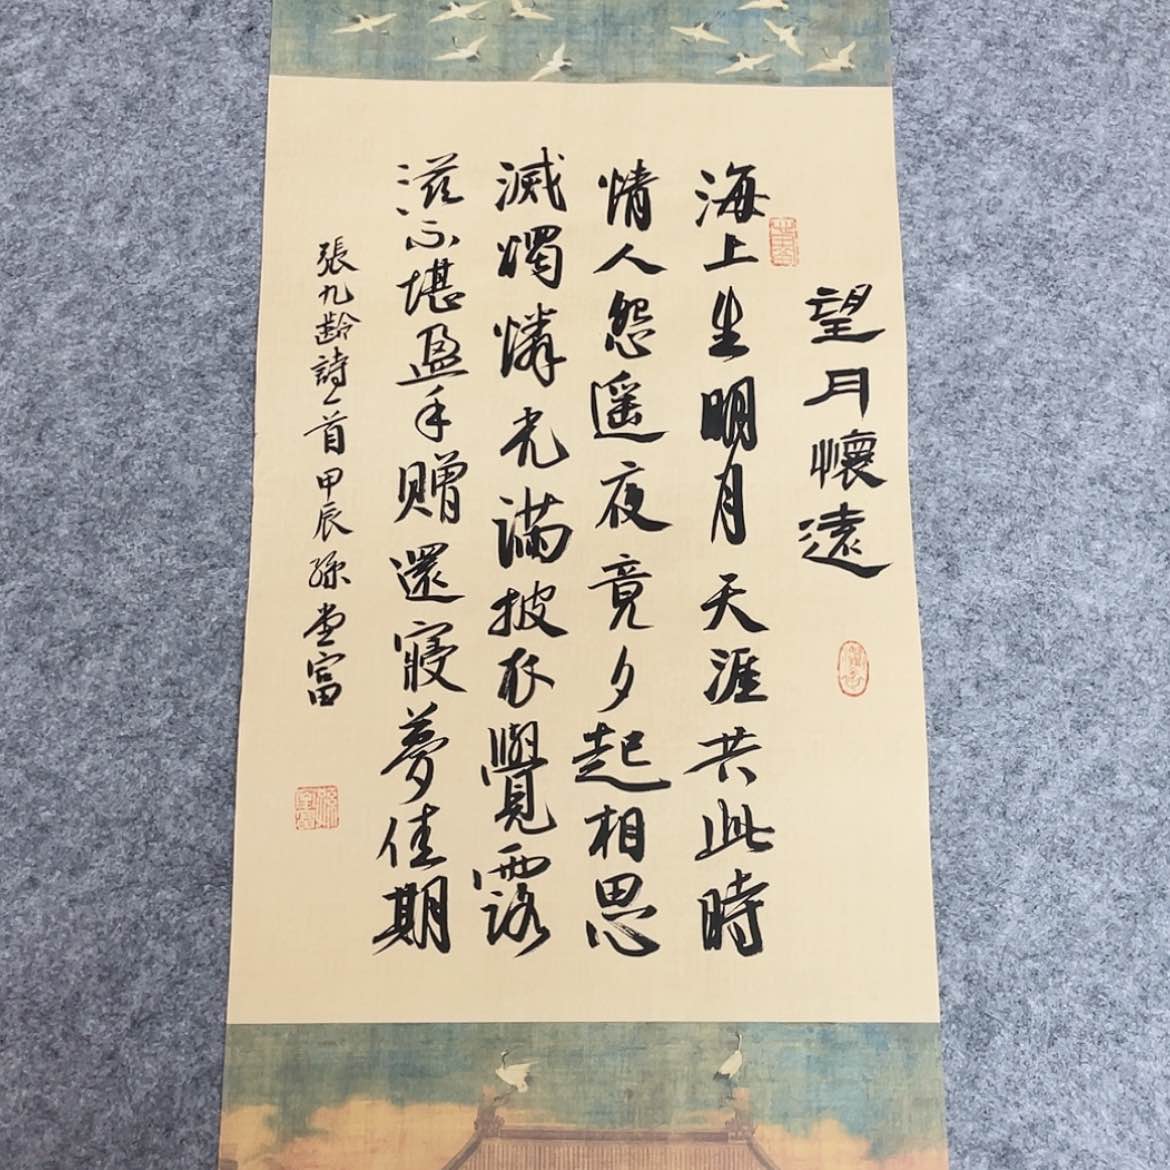 望月懷遠
海上生明月天涯共此時
情人怨遥夜竟夕起相思
滅燭憐光滿披衣覺露
滋不堪盈手贈還寢夢佳期
張九齡詩一首甲辰孫堂富